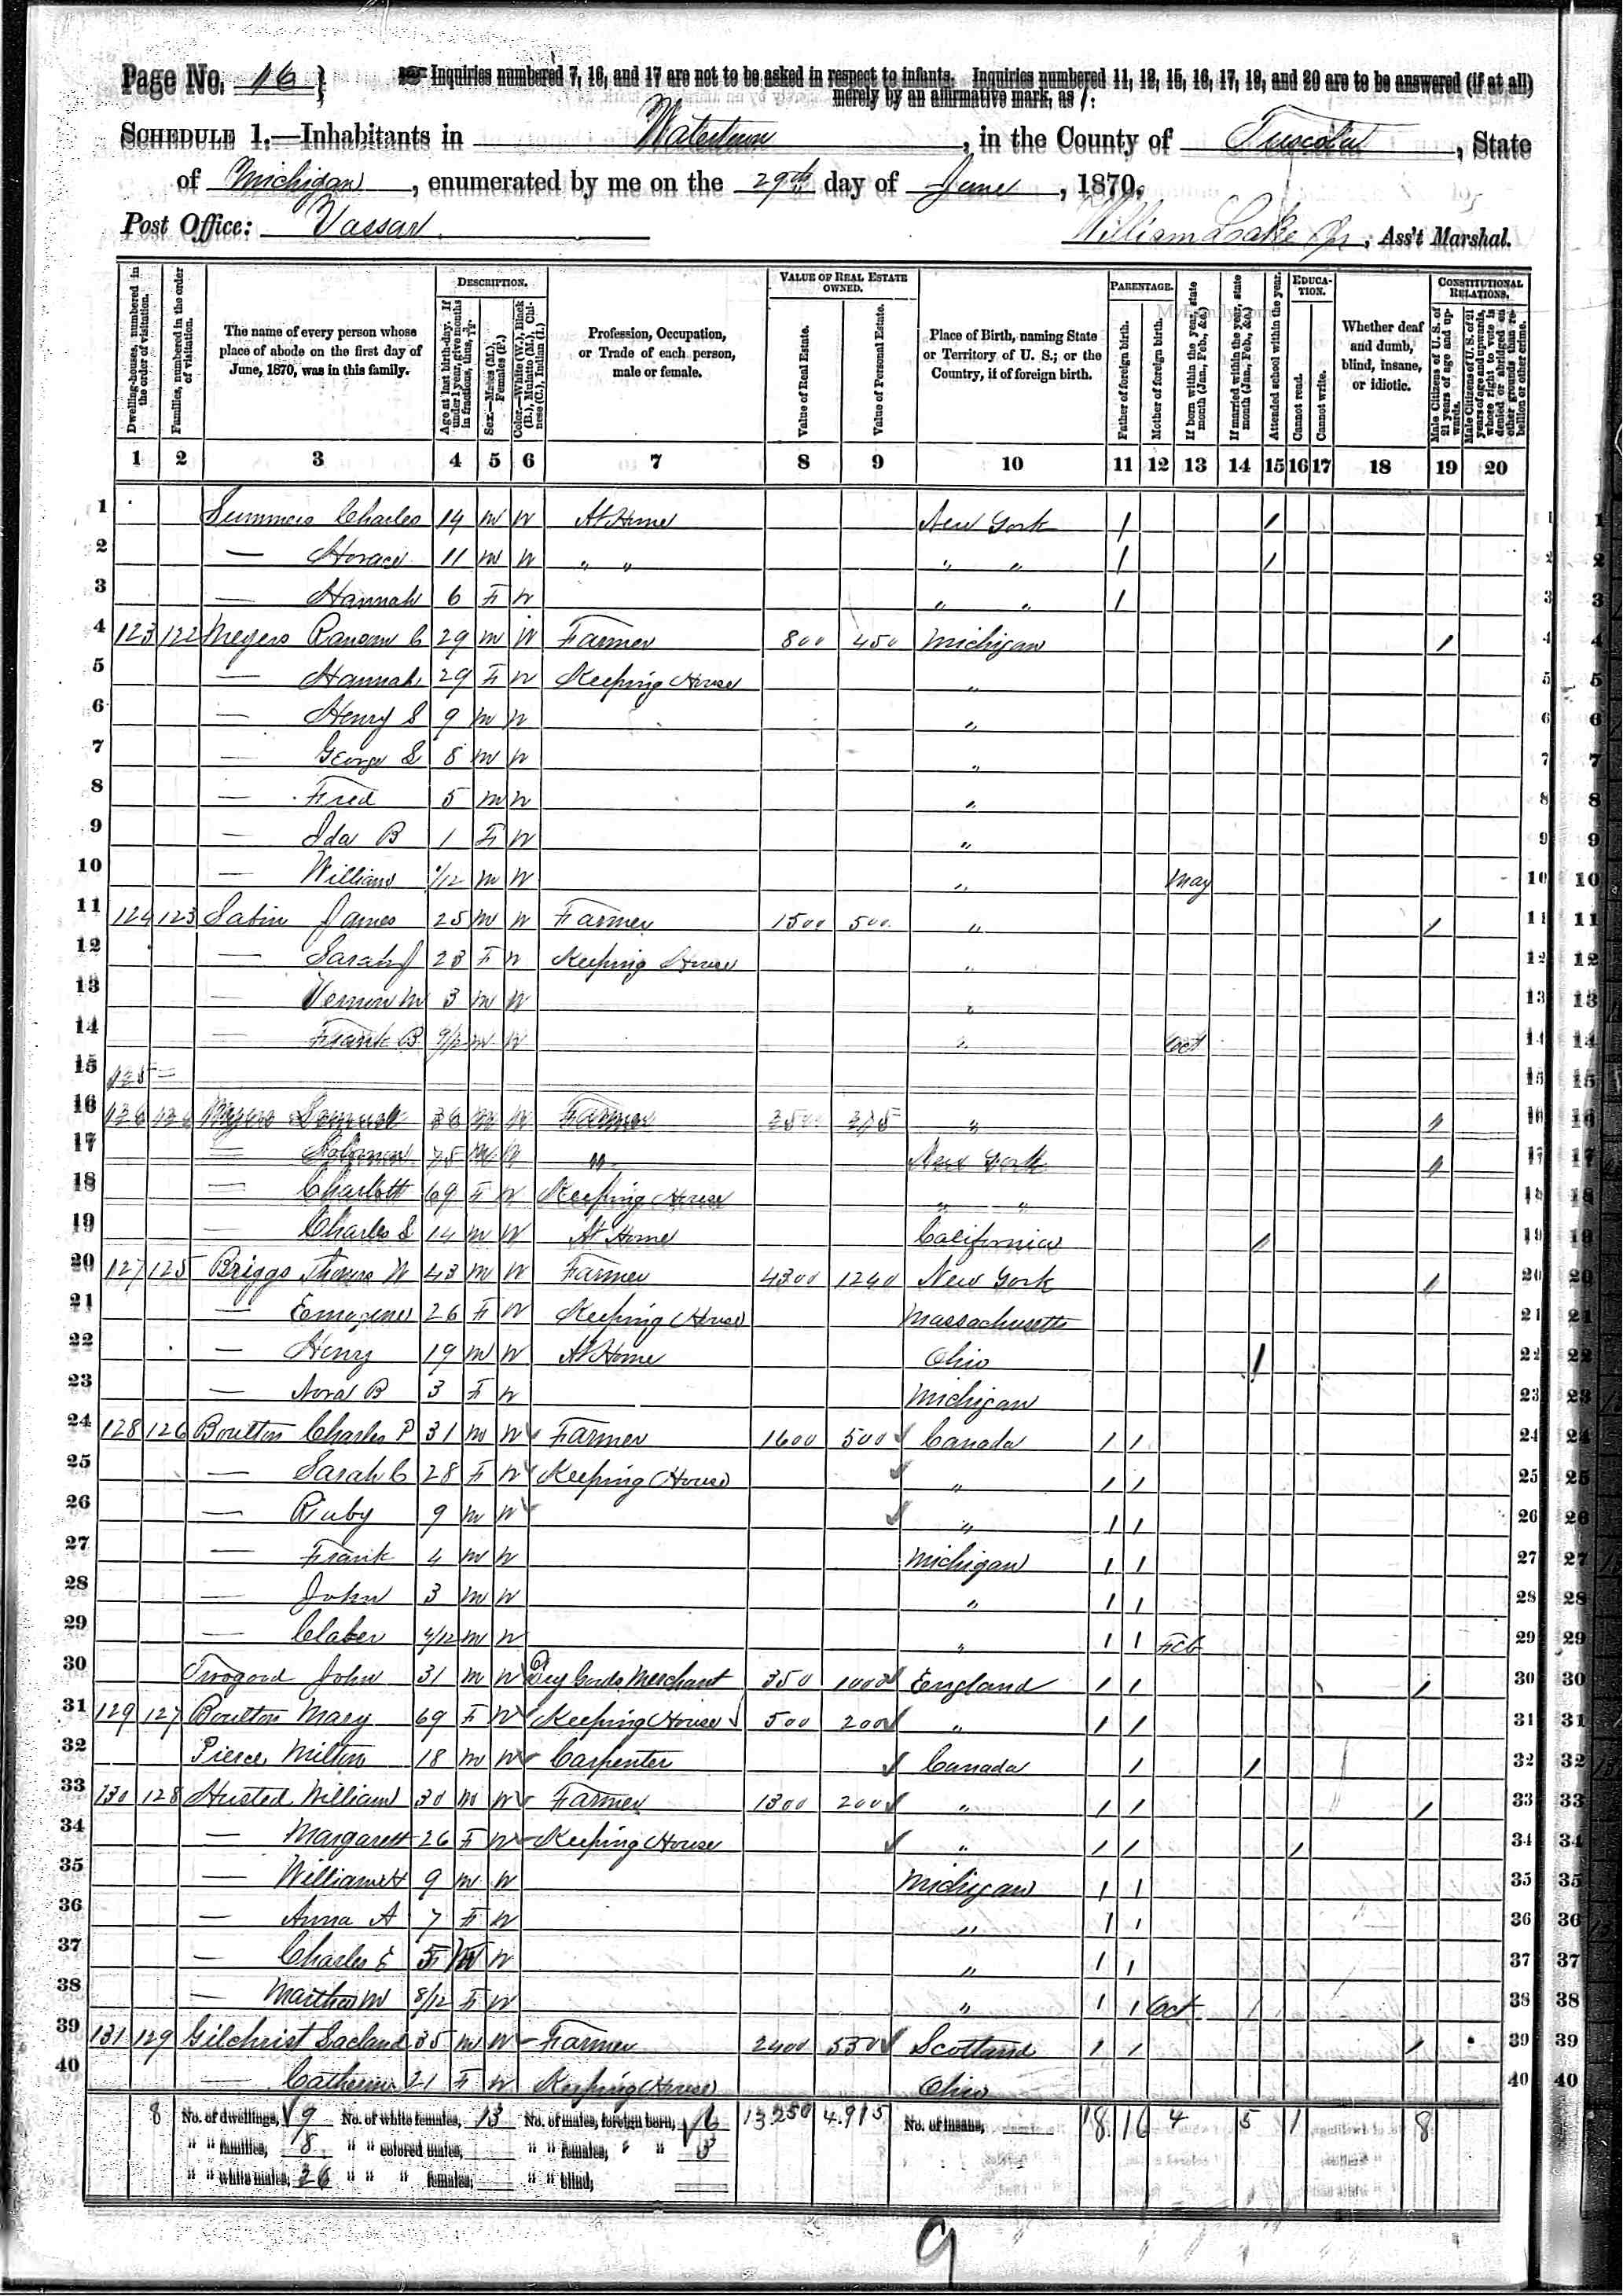 Page No. 16 } ☞ Inquiries numbered 7, 16, and 17 are not to be asked in respect to infants. Inquiries numbered 11, 12, 15, 16, 17, 19, and 20 are to be answered (if at all)
merely by an affirmative mark, as /.
SCHEDULE 1.—Inhabitants in Watertown, in the County of Tuscola, State
of Michigan, enumerated by me on the 29th day of June, 1870.
Post Office: Vassar William Lake Jr, Ass't Marshal.
Dwelling-houses, numbered in the order of visitation.
Families, numbered in the order of visitation.
The name of every person whose place of abode on the first day of June, 1870, was in this family.
DESCRIPTION.
Age at last birth-day. If under 1 year, give months in fractions, thus, 3/12.
Sex.—Males (M.), Females (F.)
Color.—White (W.), Black (B.), Mulatto (M.), Chinese (C.), Indian (I.)
Profession, Occupation, or Trade of each person, male or female.
VALUE OF REAL ESTATE OWNED.
Value of Real Estate.
Value of Personal Estate.
Place of Birth, naming State or Territory of U. S.; or the Country, if of foreign birth.
PARENTAGE.
Father of foreign birth.
Mother of foreign birth.
If born within the year, state month (Jan., Feb., &c.)
If married within the year, state month (Jan., Feb., &c.)
Attended school within the year.
EDUCATION.
Cannot read.
Cannot write.
Whether deaf and dumb, blind, insane, or idiotic.
CONSTITUTIONAL RELATIONS.
Male Citizens of U. S. of 21 years of age and upwards.
Male Citizens of U. S. of 21 years of age and upwards, whose right to vote is denied or abridged on other grounds than rebellion or other crime.
1 2 3 4 5 6 7 8 9 10 11 12 13 14 15 16 17 18 19 20
1 Summers Charles 14 M W At Home New York / / 1
2 — Horace 11 M W " " " " / / 2
3 — Hannah 6 F W " " / 3
4 123 122 Meyers Ransom C 29 M W Farmer 800 450 Michigan / 4
5 — Hannah 29 F W Keeping House " 5
6 — Henry S 9 M W " 6
7 — George S 8 M W " 7
8 — Fred 5 M W " 8
9 — Ida B 1 F W " 9
10 — William 1/12 M W " May 10
11 124 123 Sabin James 25 M W Farmer 1500 500 " / 11
12 — Sarah J 23 F W Keeping House " 12
13 — Vernon M 3 M W " 13
14 — Frank B 9/12 M W " Oct 14
15 125 — 15
16 126 124 Meyers Samuel 36 M W Farmer " / 16
17 — Solomon 75 M W " New York / 17
18 — Charlott 69 F W Keeping House " " 18
19 — Charles S 14 M W At Home California / 19
20 127 125 Briggs Thomas W 43 M W Farmer 4300 1240 New York / 20
21 — Emogene 26 F W Keeping House Massachusetts 21
22 — Henry 19 M W At Home Ohio / 22
23 — Nora B 3 F W Michigan 23
24 128 126 Boulton Charles P 31 M W Farmer 1600 500 Canada / / 24
25 — Sarah C 28 F W Keeping House " / / 25
26 — Ruby 9 M W " / / 26
27 — Frank 4 M W Michigan / / 27
28 — John 3 M W " / / 28
29 — 4/12 M W " / / Feb 29
30 Twogood John 31 M W Dry Goods Merchant 350 1000 England / / / 30
31 129 127 Boulton Mary 69 F W Keeping House 500 200 " / / 31
32 Pierce Milton 18 M W Carpenter Canada / / 32
33 130 128 Husted William 30 M W Farmer 1300 200 " / / / 33
34 — Margarett 26 F W Keeping House " / / / 34
35 — William H 9 M W Michigan / / 35
36 — Anna A 7 F W " / / 36
37 — Charles E 5 M W " / / 37
38 — Martha M 8/12 F W " / / Oct 38
39 131 129 Gilchrist 35 M W Farmer 2400 530 Scotland / / / 39
40 — Catherine 21 F W Keeping House Ohio 40
8 No. of dwellings, 9 No. of white females, 13 No. of males, foreign born, 6 13250 4.915 No. of insane, 18 16 4 5 1 8
" " families, 8 " " colored males, " " females, " " 3
" " white males, 26 " " " females, " " blind,
9